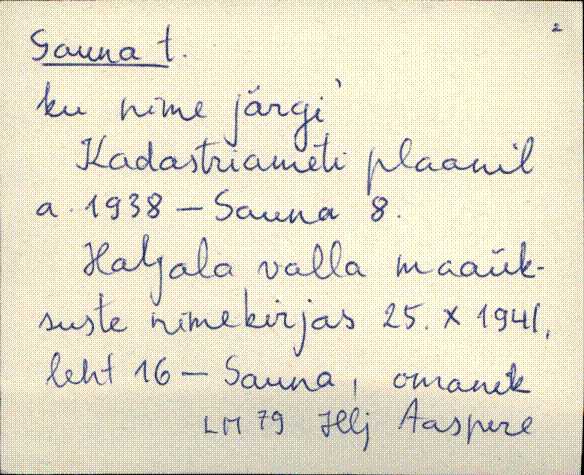 2
Sauna t.
ku nime järgi'
Kadastriameti plaanil
a. 1938 — Sauna 8.
Haljala valla maaük-
suste nimekirjas 25. X 1941,
leht 16 — Sauna, omanik
LM 79 Hlj Aaspere